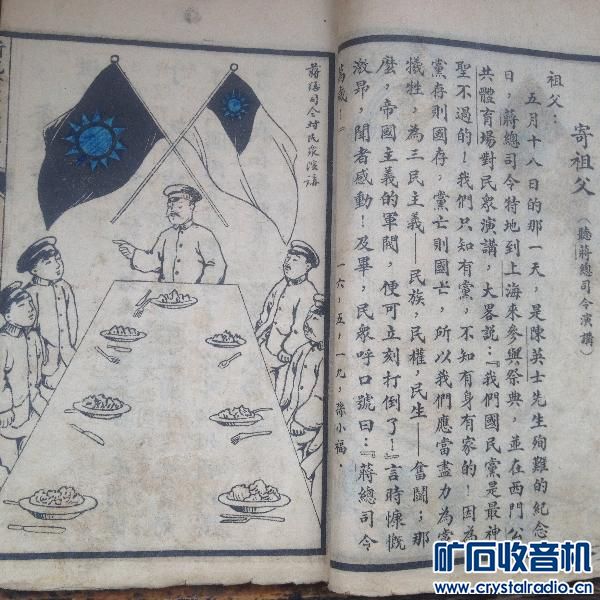 寄祖父（聽蔣總司令演講）
祖父：
五月十八日的那一天，是陳英士先生殉難的紀念
日，蔣總司令特地到上海來參與祭典，並在西門公
共體育場對民衆演講，大畧說：『我們國民黨是最神
聖不過的！我們只知有黨，不知有身有家的！因為
黨存則國存，黨亡則國亡，所以我們應當盡力為黨
犧牲，為三民主義——民族，民權，民生——奮鬬；那
麽，帝國主義的軍閥，便可立刻打倒了！』言時慷慨
激昂，聞者感動！及畢，民衆呼口號曰：『蔣總司令
萬歲！』
一六，五，一九，孫小福．
蔣總司令對民衆演講
矿石收音机
www.crystalradio.cn